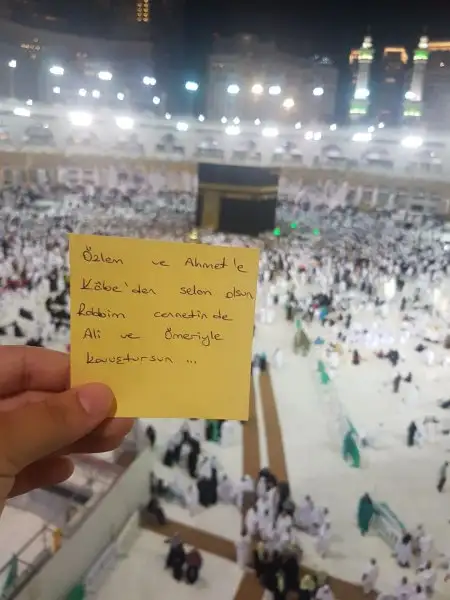 Özlem ve Ahmet'e
Kâbe'den selam olsun
Rabbim cennetinde
Ali ve Ömeriyle
kavuştursun ...